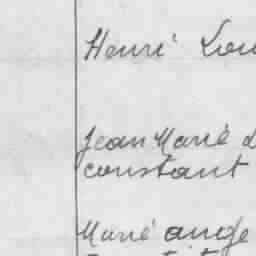 Henri Lou
Jean Marie
constant
Marie ange